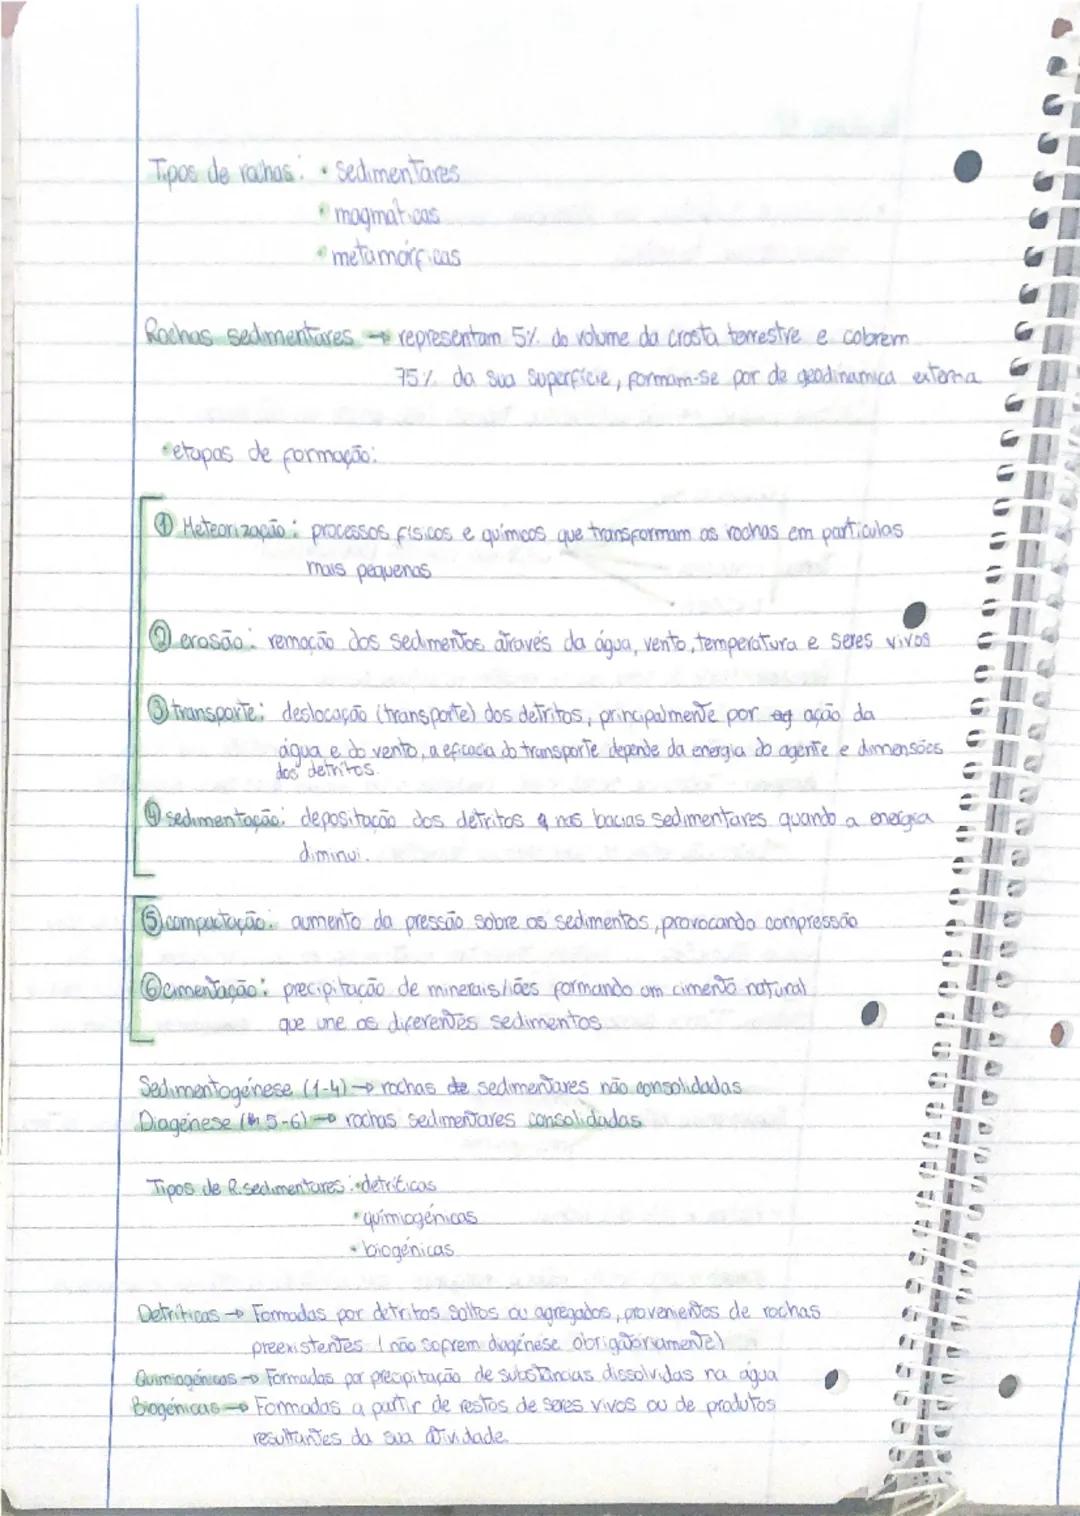 Tipos de rochas: • Sedimentares
• magmáticas
• metamórficas
Rochas sedimentares → representam 5% do volume da crosta terrestre e cobrem
75% da sua superfície, formam-se por de geodinamica externa
• etapas de formação:
① Meteorização: processos físicos e químicos que transformam as rochas em partículas
mais pequenas
② erosão: remoção dos sedimentos através da água, vento, temperatura e seres vivos
③ transporte: deslocação (transporte) dos detritos, principalmente por ação da
água e do vento, a eficacia do transporte depende da energia do agente e dimensões
dos detritos.
④ sedimentação: depositação dos detritos nas bacias sedimentares quando a energia
diminui.
⑤ compactação: aumento da pressão sobre os sedimentos, provocando compressão
⑥ cimentação: precipitação de minerais/iões formando um cimento natural
que une os diferentes sedimentos
Sedimentogénese (1-4) → rochas sedimentares não consolidadas
Diagénese (5-6) → rochas sedimentares consolidadas
Tipos de R.sedimentares: • detríticas
• quimiogénicas
• biogénicas
Detríticas → Formadas por detritos soltos ou agregados, provenientes de rochas
preexistentes (não sofrem diagénese obrigatoriamente)
Quimiogénicas → Formadas por precipitação de substâncias dissolvidas na água
Biogénicas → Formadas a partir de restos de seres vivos ou de produtos
resultantes da sua atividade.